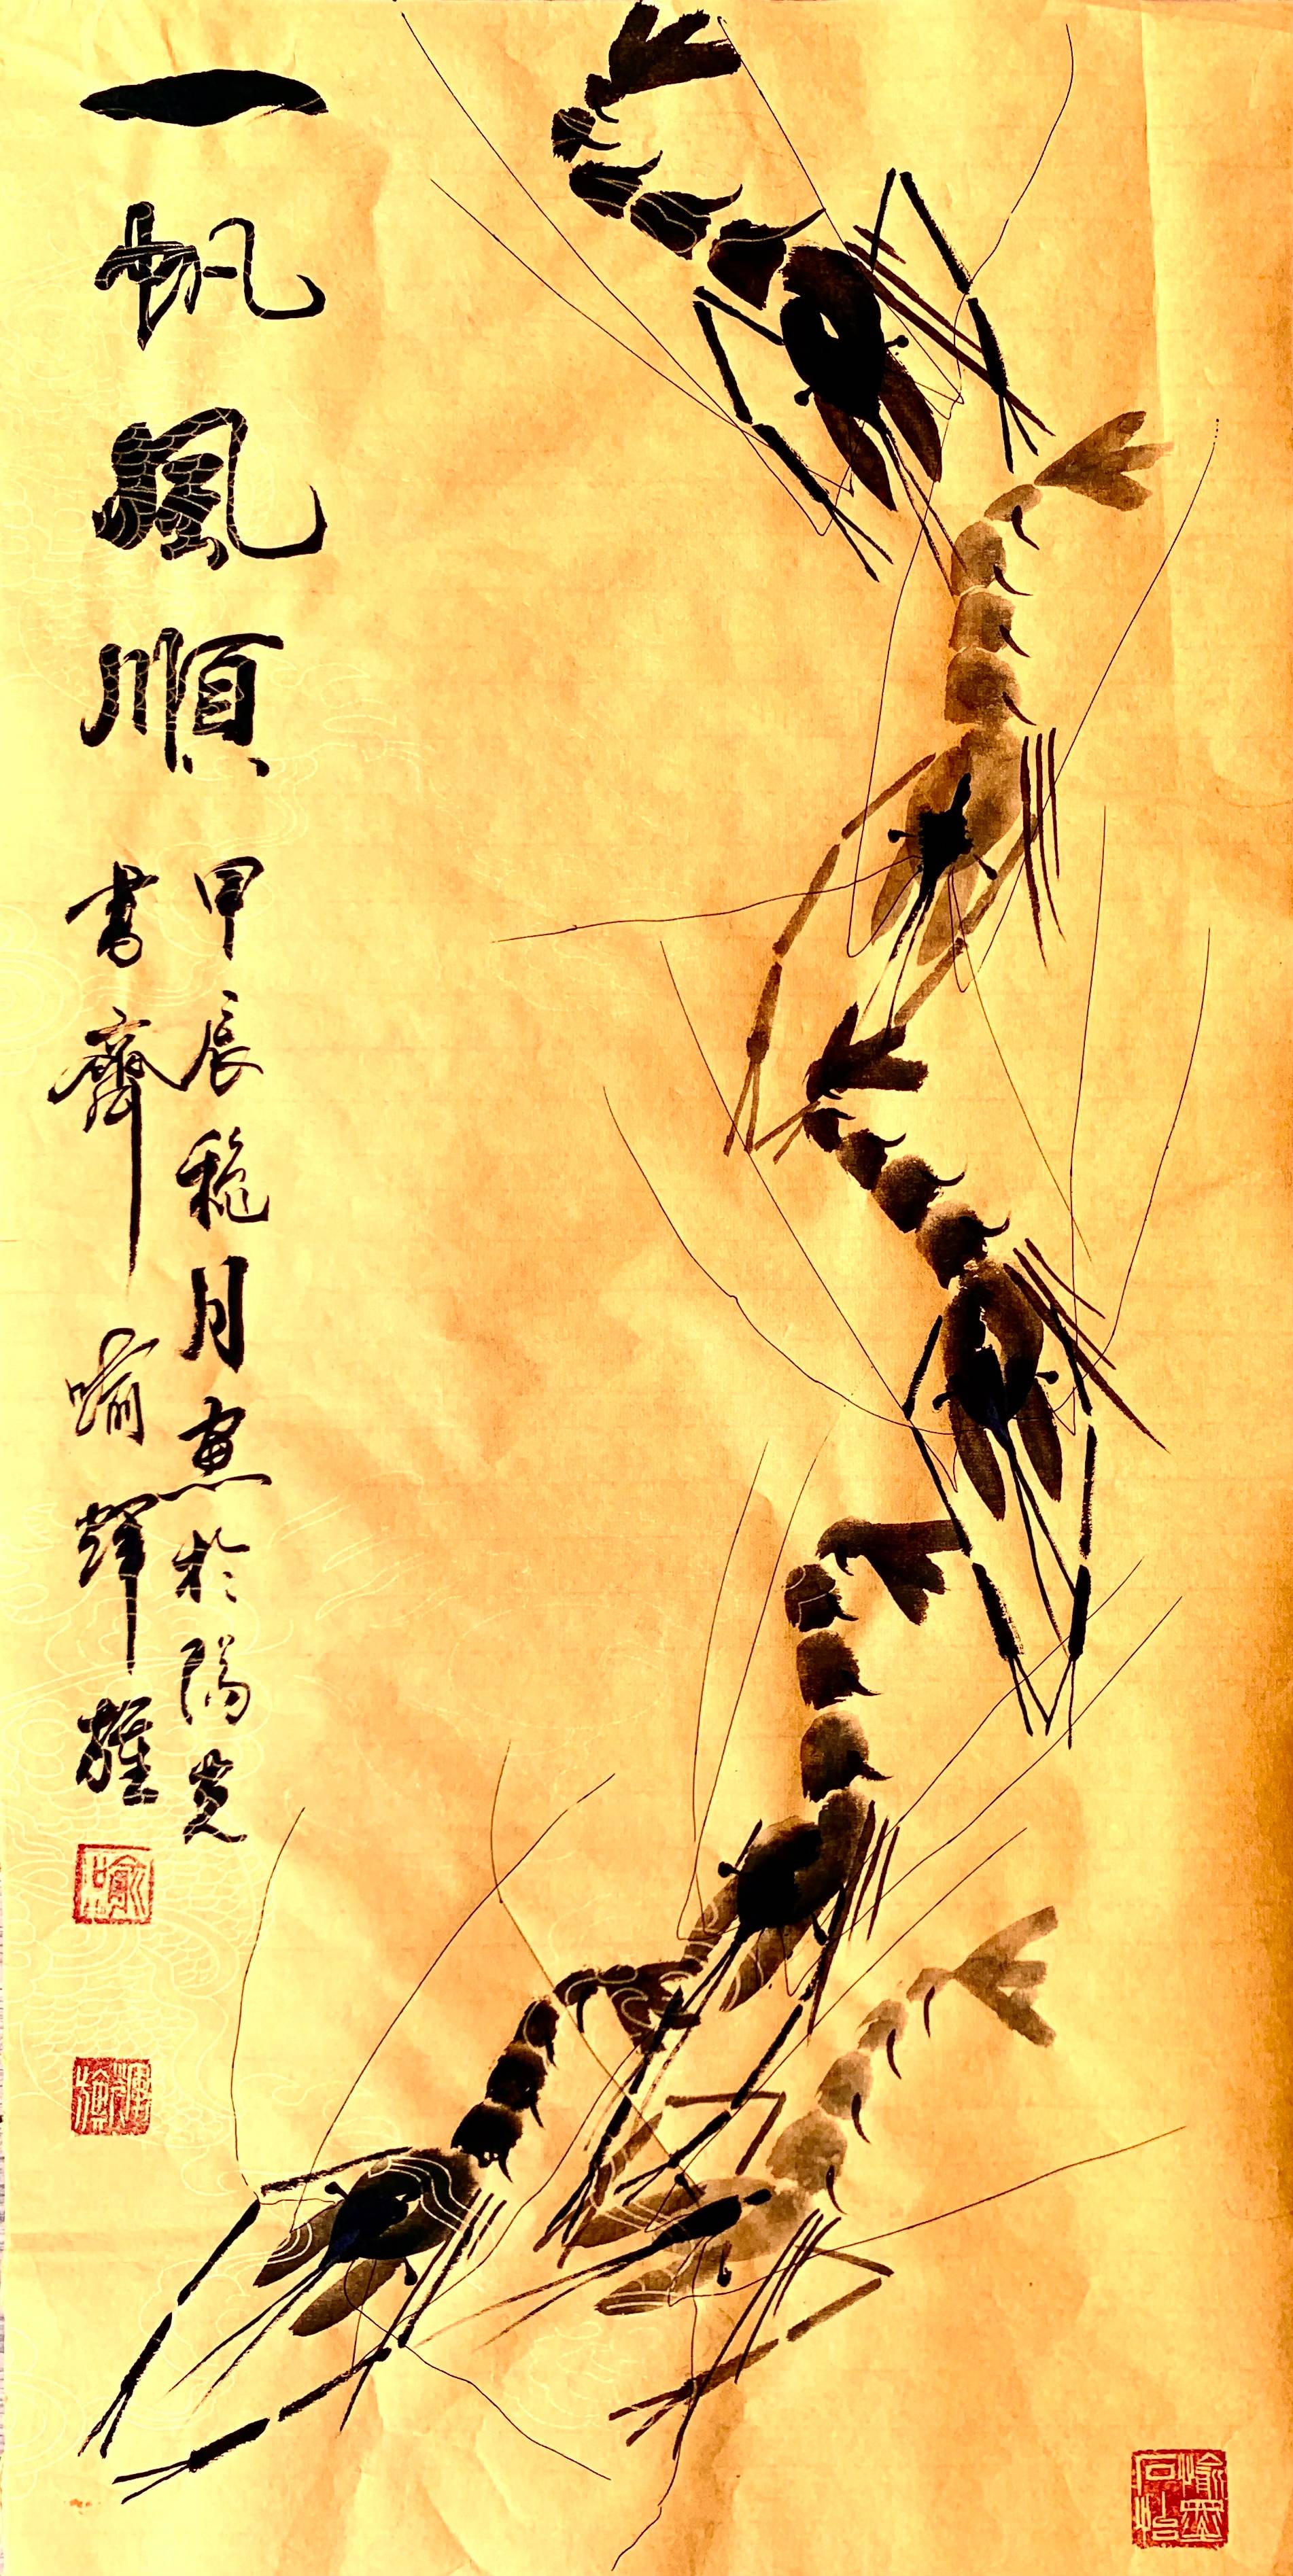 一帆風順
甲辰穐月畫於陽光
書齋 喻輝雄